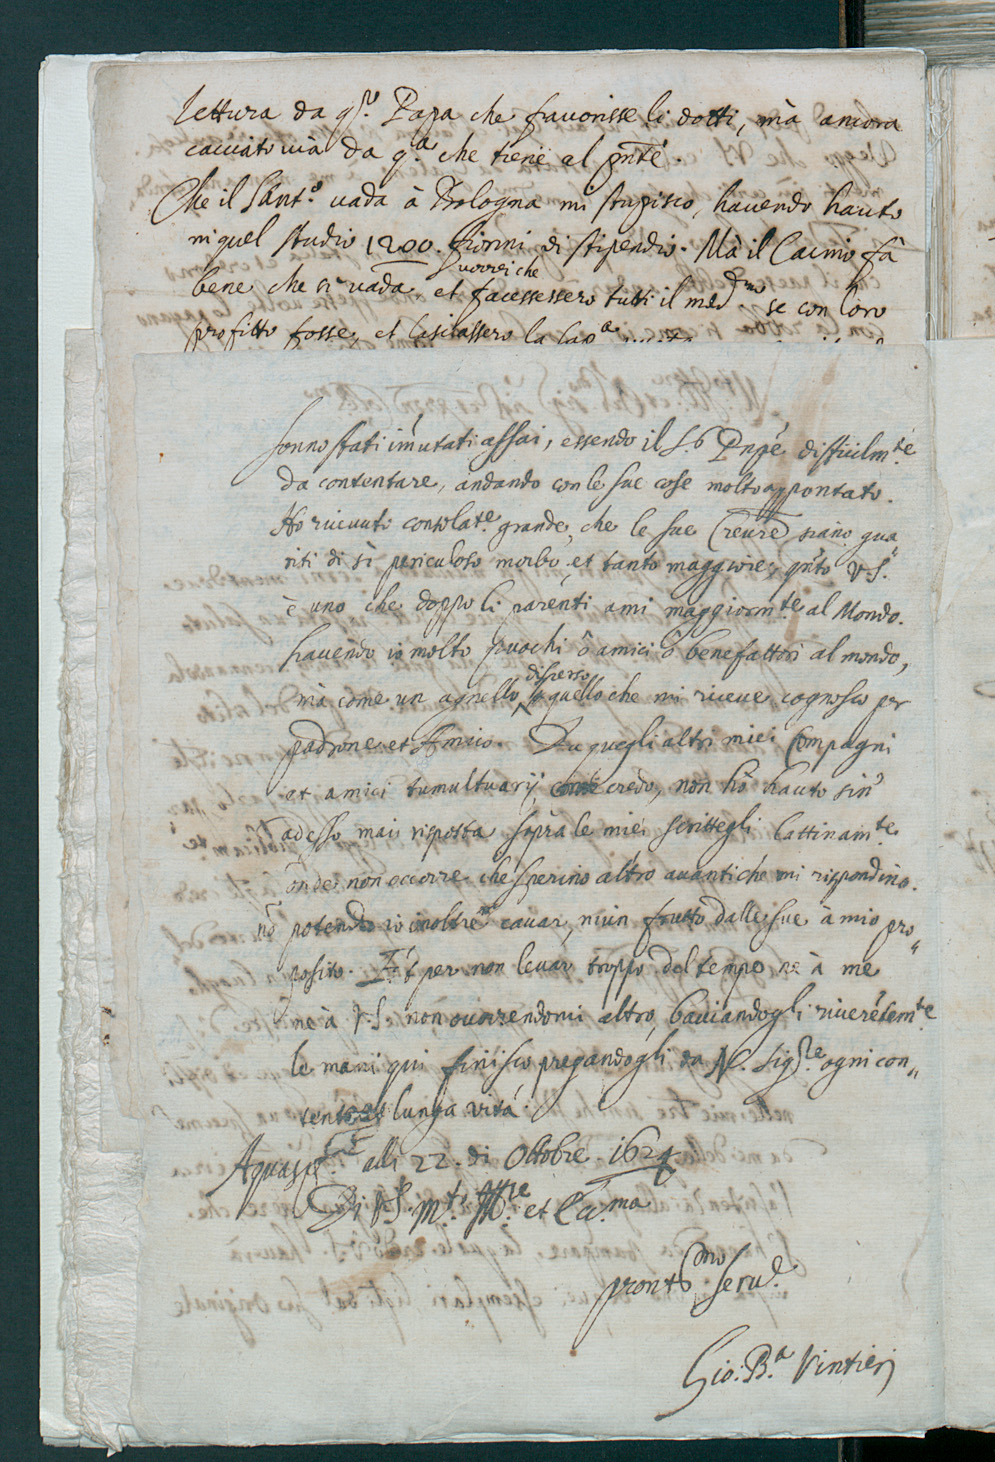 lettura da q.sto Papa che fauorisse li dotti, mà ancora
cacciato uia da q.a che tiene al pnte.
Che il Sant.o uada à Bologna mi stupisco, hauendo hauto
in quel studio 1200. fiorini di stipendio. Mà il Caimo fà
uorrei che
bene che si uada et facessessero tutti il med.mo se con loro
profitto fosse, et lasciassero la
sonno stati imutati assai, essendo il S.o Pnpe difficilm.te
da contentare, andando con le sue cose molto appontato.
Ho riceuuto consolat.e grande, che le sue Creure siano gua
riti di sì periculoso morbo, et tanto maggiore, q.nto V.S.
è uno che doppo li parenti ami maggiorm.te al Mondo.
hauendo io molto puochi ò amici ò benefattori al mondo,
disperso
mà come un agnello quello che mi riceue cognosco per
padrone et Amico. Da quegli altri miei Compagni
et amici tumultuarij, credo, non hò hauto sin
adesso mai risposta sopra le miei scrittegli lattinam.te
onde non occorre che sperino altro auanti che mi rispondino.
nõ potendo io inoltre cauar niun frutto dalle sue à mio pro„
posito. Et per non leuar troppo del tempo ne à me
ne à V.S. non ocorrendomi altro, baciandogli riuerétem.te
le mani qui finisco pregandogli da N. Sig.re ogni con„
tento et lunga vita.
alli 22. di Ottobre. 1624
Di V.S. M.to Ill.re et Ecc.ma
pront.mo seru.e
Gio: B.a Vintieri